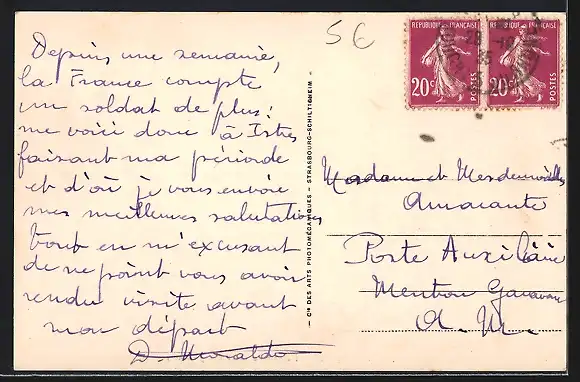 Depuis une semaine,
la France compte
un soldat de plus:
me voici donc à Istres
faisant ma période
et d'où je vous envoie
mes meilleures salutations
tout en m'excusant
de ne point vous avoir
rendu visite avant
mon départ
D. Moraldo
5€
RÉPUBLIQUE FRANÇAISE
20c
POSTES
RÉPUBLIQUE FRANÇAISE
20c
POSTES
– Cie DES ARTS PHOTOMÉCANIQUES – STRASBOURG-SCHILTIGHEIM –
Madame et Mesdemoiselles
Amarante
Poste Auxiliaire
Menton Garavan
A. M.